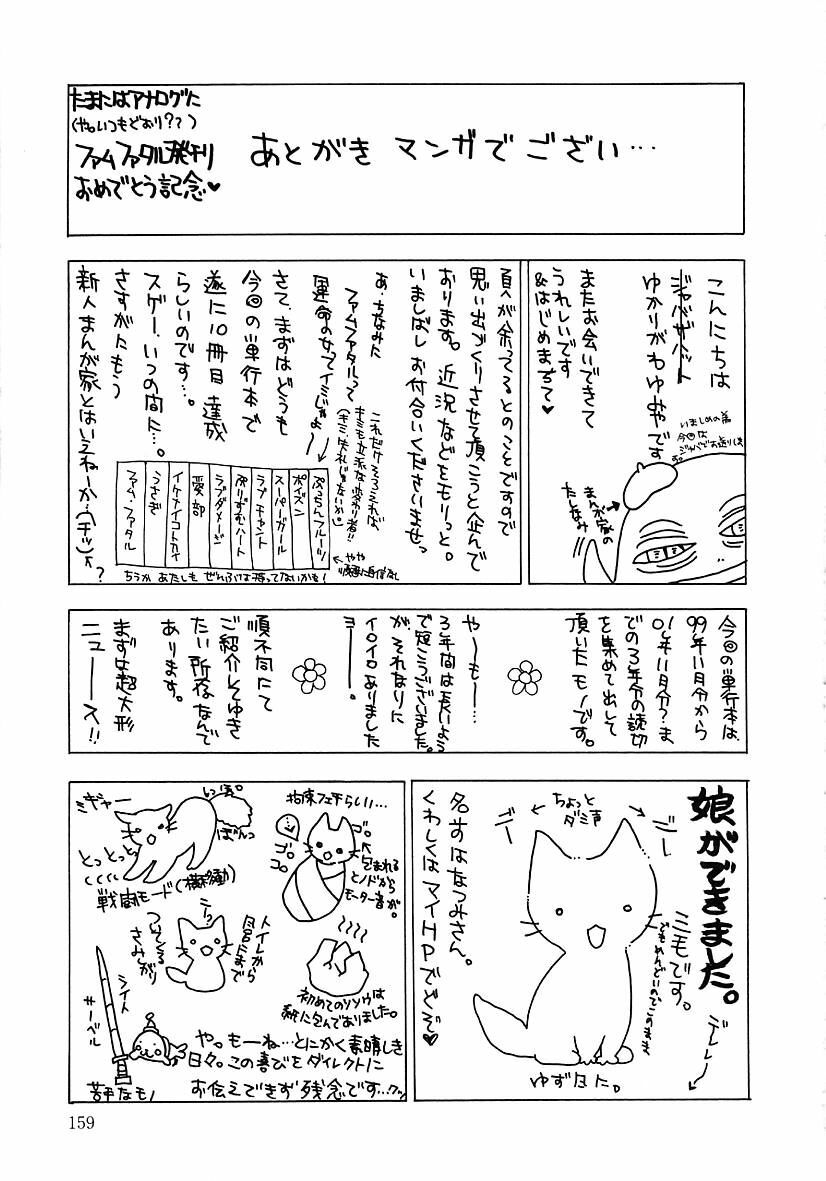 たまにはアナログに
(や。いつもどおり??)
ファムファタル発刊
おめでとう記念♥
あとがき マンガで ござい…
こんにちは
ジャバザハット
ゆかりがわゆみやです
いましめの為
今回は
ジャバでお送りします。
またお会いできて
うれしいです
&はじめまちて♥
まんが家の
たしなみ
頁が余ってるとのことですので
思い出づくりさせて頂こうと企んで
おります。近況などをもりっと。
いましばしお付合いくださいませっ
あ、ちなみに
ファムファタルって
運命の女ってイミじゃよ〜
さて、まずはどうも
今回の単行本で
遂に10冊目達成
らしいのです…。
スゲー、いつの間に…。
さすがたもう
新人まんが家とはいえねーか…(チッ)
これだけそろえれば
キミも立派な変わり者!!
(キミ失礼じゃないか。)
ぷっちんフルーツ
ポイズン
スーパーガール
ラブチャント
ぷりずむハート
ラブダメージ
愛部
イケナイコトカイ
うさぎ
ファム・ファタル
←やや
順番に自信なし
ちうか あたしも ぜんぶは持ってないかも!
?
今回の単行本は、
99年11月分から
01年11月分?ま
での3年分の読切
を集めて出して
頂いたモノです。
やーもー…
3年間は長いよう
で短こうございました。
が、それなりに
イロイロありました
ヨーー。
順不同にて
ご紹介してゆき
たい所存なんで
あります。
まずは超大形
ニュース!!
娘ができました。
デレレー
ミモです。
でもめんどいのでこのまま
ニー
←ちょっとダミ声→
ニー
名すはなつみさん。
くわしくはマイHPでどぞ♥
ゆずるに。
拘束フェチらしい…
ゴロ。
ゴロゴロ
包まれる
とノドから
モーター音が。
しっぽ。
ぼんっ
ミギャー
とっとっとっ
戦闘モード(横移動)
ニーッ
トイレから
居間まで
ついてくる
さみしがり
初めてのソソウは
紙に包んでありました。
ライト
サーベル
苦手なモノ
や。もーね…とにかく素晴しき
日々。この喜びをダイレクトに
お伝えできず残念です…クッ
159